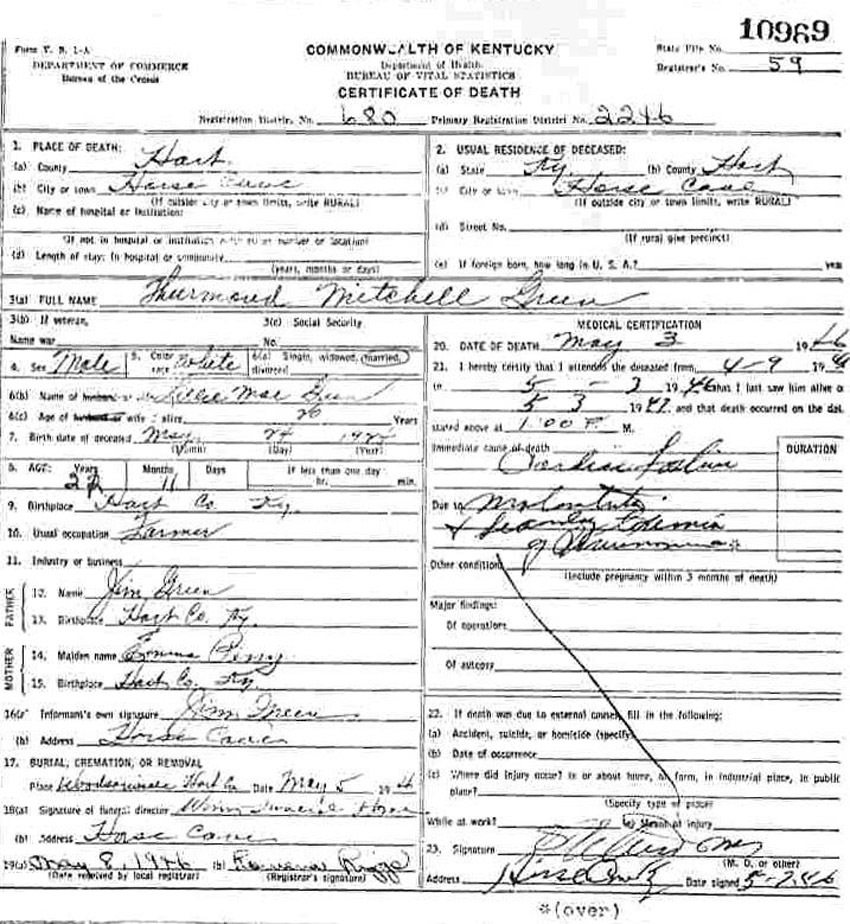 10969
Form V. S. 1-A
DEPARTMENT OF COMMERCE
Bureau of the Census
COMMONWEALTH OF KENTUCKY
Department of Health
BUREAU OF VITAL STATISTICS
CERTIFICATE OF DEATH
State File No.
Registrar's No. 59
Registration District No. 680 Primary Registration District No. 2246
1. PLACE OF DEATH:
(a) County Hart
(b) City or town Horse Cave
(If outside city or town limits, write RURAL)
(c) Name of hospital or institution:
(If not in hospital or institution number or location)
(d) Length of stay: In hospital or community
(years, months or days)
2. USUAL RESIDENCE OF DECEASED:
(a) State Ky. (b) County Hart
City or town Horse Cave
(If outside city or town limits, write RURAL)
(d) Street No.
(If rural give precinct)
(e) If foreign born, how long in U. S. A.? year
3(a) FULL NAME Thurmond Mitchell Green
3(b) If veteran,
Name war
3(c) Social Security
No.
4. Sex Male 5. Color race White 6(a) Single, widowed, married, divorced
6(b) Name of husband or Mae Green
6(c) Age of husband or wife if alive 20 Years
7. Birth date of deceased May 24
(Month) (Day) (Year)
8. AGE: Years Months Days If less than one day
11 hr. min.
9. Birthplace Hart Co. Ky.
10. Usual occupation Farmer
11. Industry or business
FATHER
12. Name Jim Green
13. Birthplace Hart Co. Ky.
MOTHER
14. Maiden name Emma
15. Birthplace Hart Co. Ky.
16(a) Informant's own signature Jim Green
(b) Address Horse Cave
17. BURIAL, CREMATION, OR REMOVAL
Place Hart Co Date May 5 1946
18(a) Signature of funeral director Winn Funeral Home
(b) Address Horse Cave
19(a) May 8, 1946 (b) Riggs
(Date received by local registrar) (Registrar's signature)
MEDICAL CERTIFICATION
20. DATE OF DEATH May 3 1946
21. I hereby certify that I attended the deceased from 4-9 1946
to 5 - 3 1946 that I last saw him alive o
5 3 1947 and that death occurred on the dat
stated above at 1:00 P. M.
Immediate cause of death
DURATION
Due to
of Pneumonia*
Other conditions
(Include pregnancy within 3 months of death)
Major findings:
Of operations
Of autopsy
22. If death was due to external causes, fill in the following:
(a) Accident, suicide, or homicide (specify)
(b) Date of occurrence
(c) Where did injury occur? In or about home, farm, in industrial place, in public
place?
(Specify type of place)
While at work? (e) Means of injury
23. Signature
(M. D. or other)
Address Date signed
*(over)